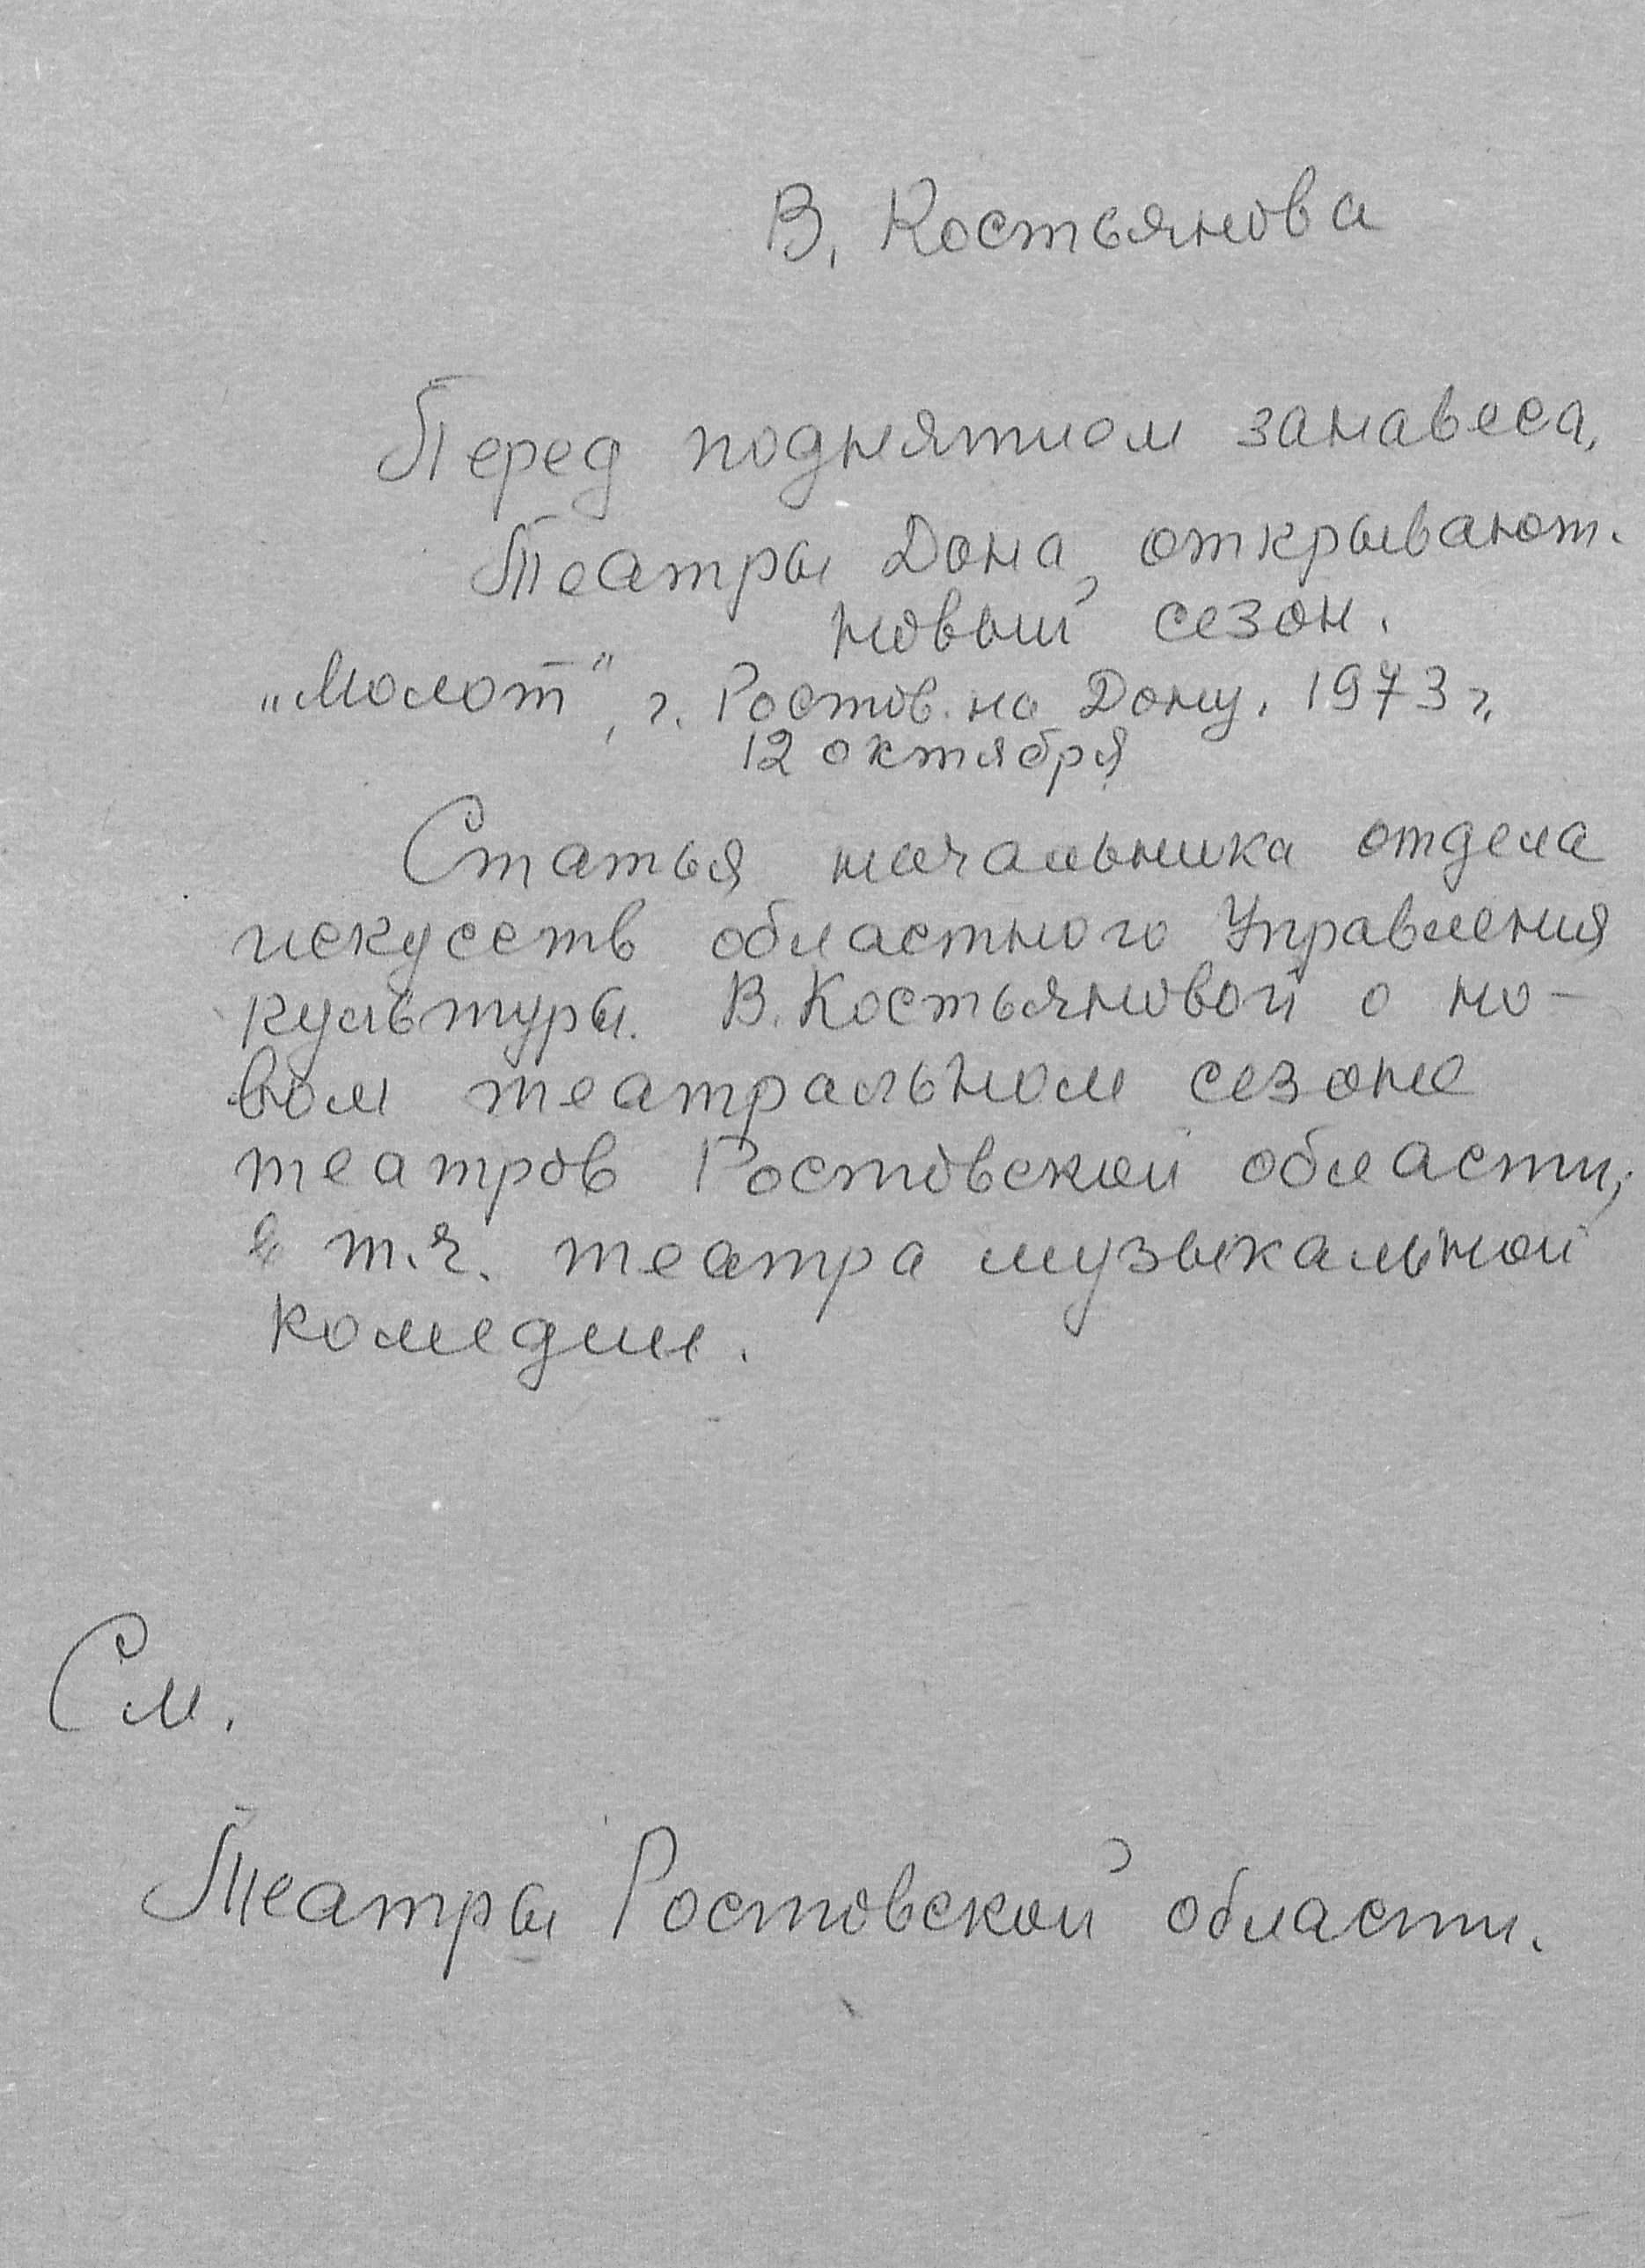 В. Костьянова
Перед поднятием занавеса.
Театры Дона открывают.
новый сезон.
„Молот", г. Ростов-на Дону. 1973 г.
12 октября
Статья начальника отдела
искусств областного Управления
культуры. В. Костьяновой о но-
вом театральном сезоне
театров Ростовской области,
в т.ч. театра музыкальной
комедии.
См.
Театры Ростовской области.